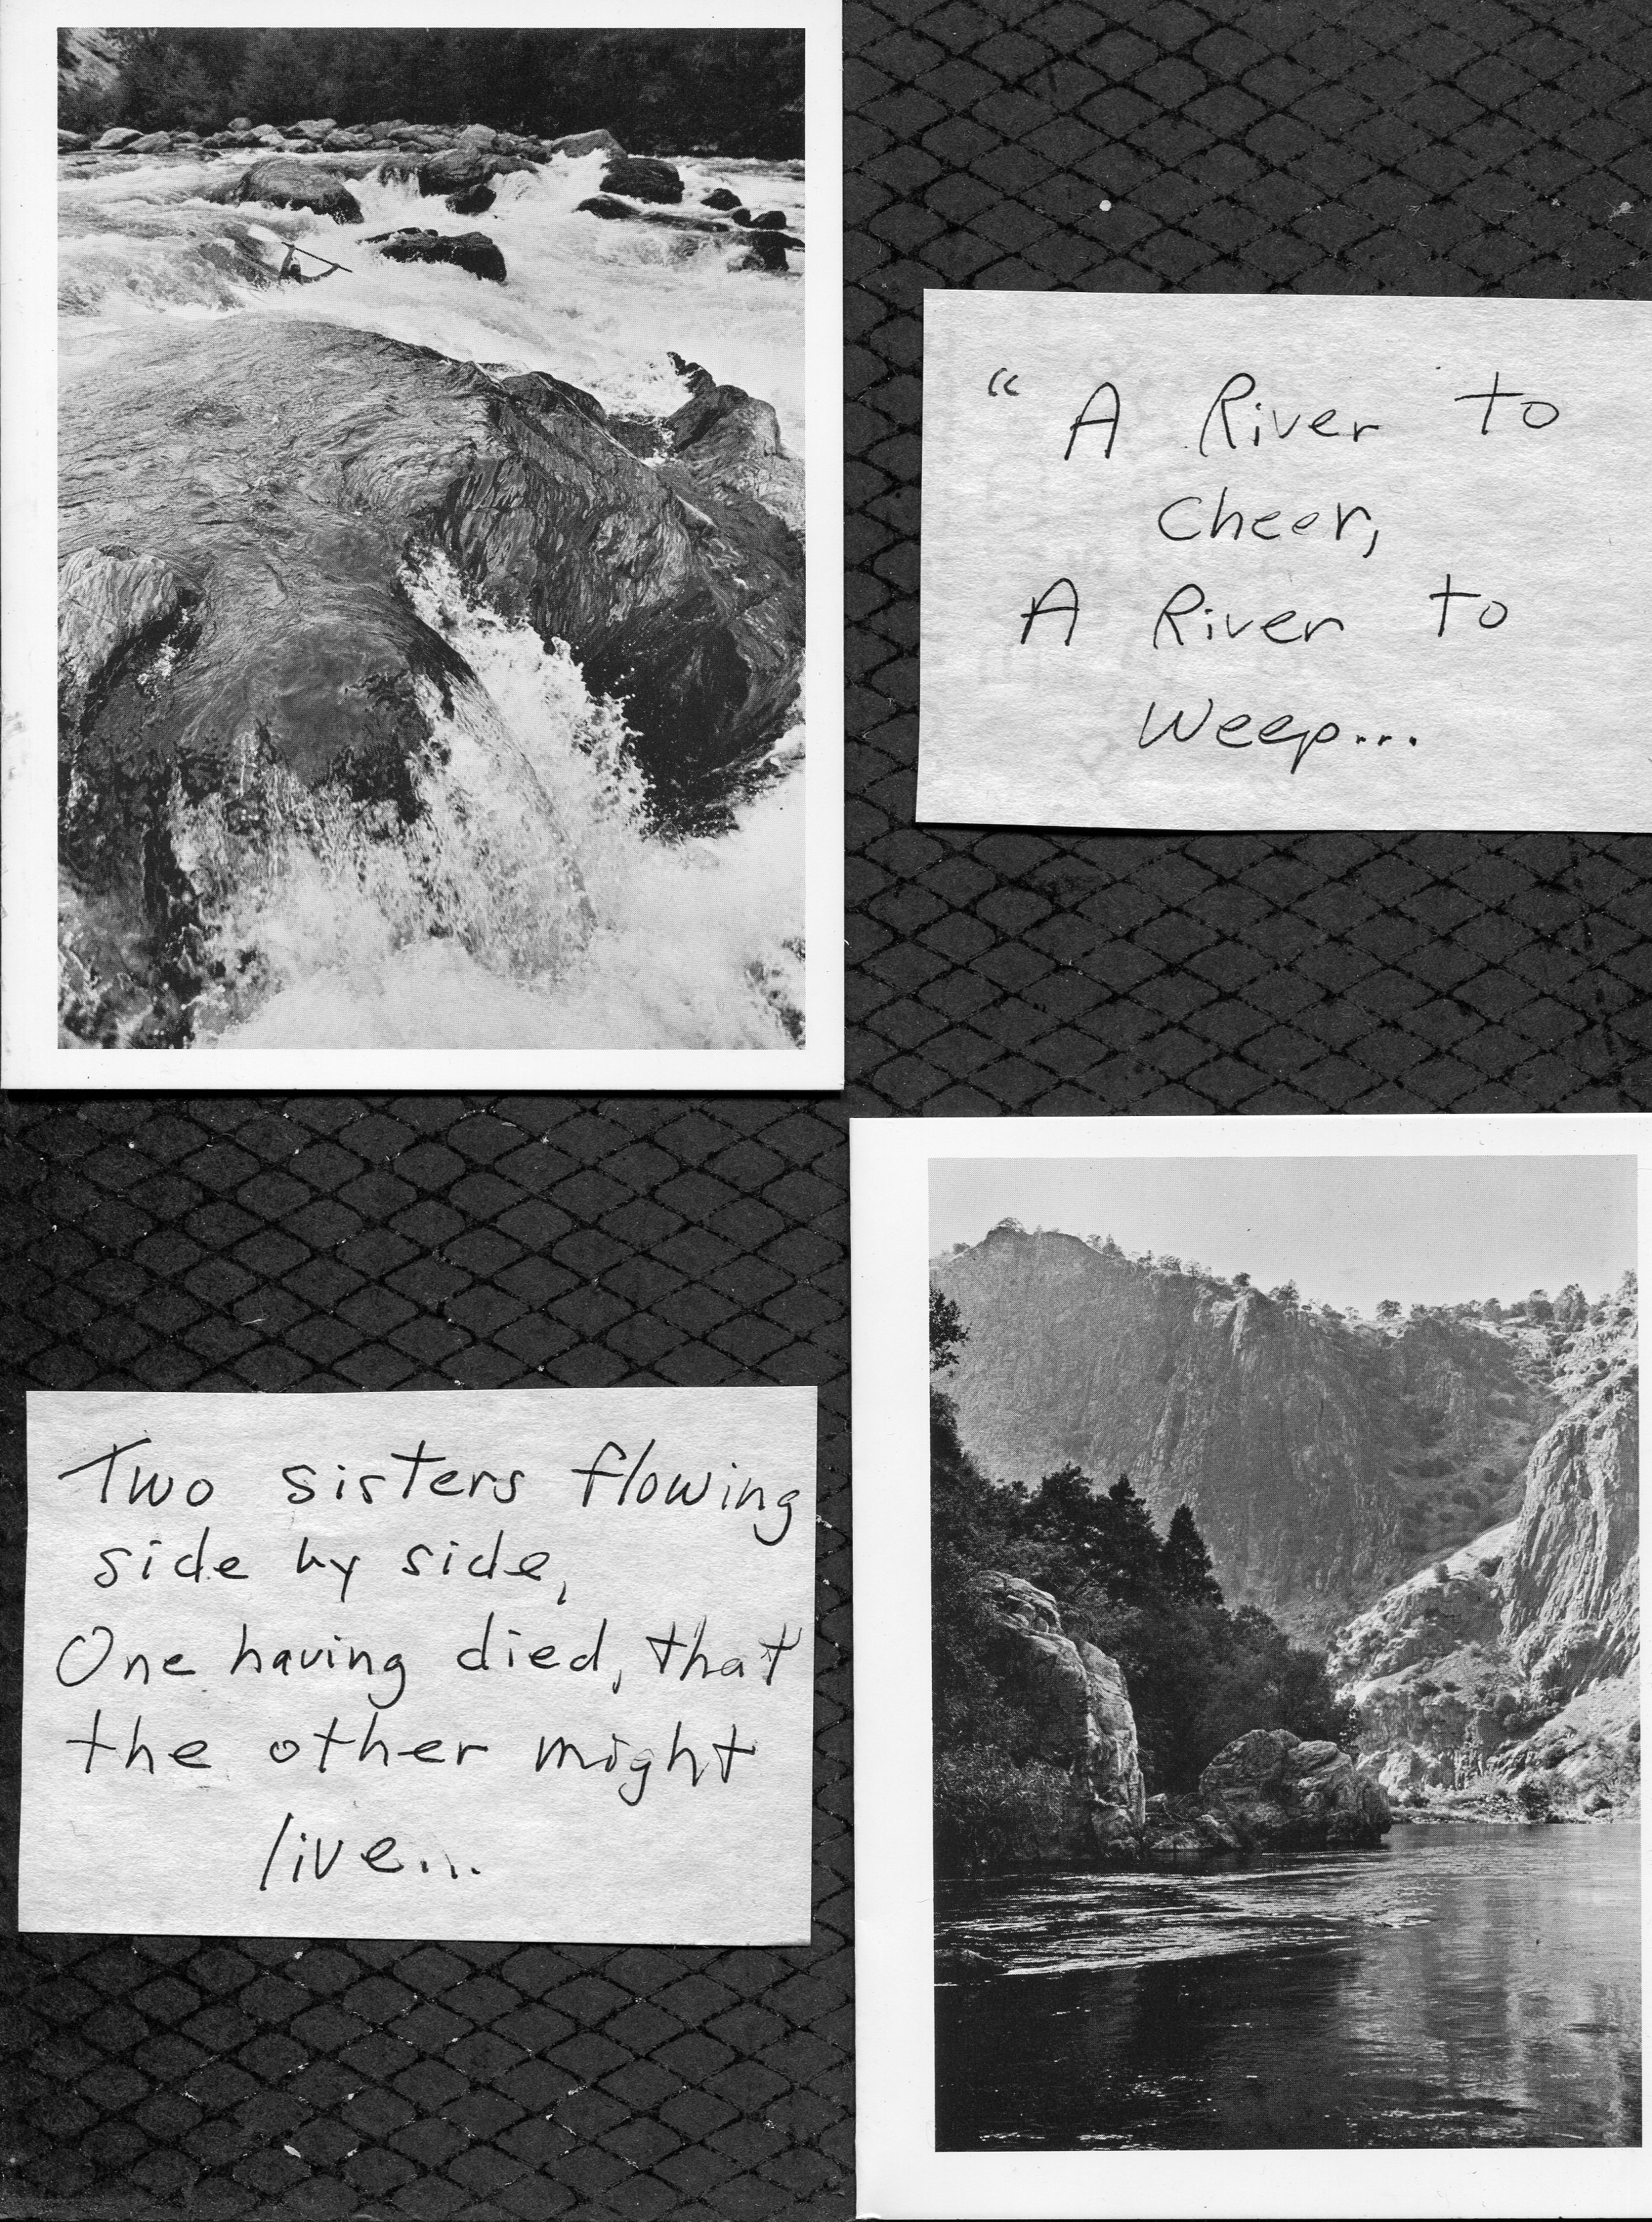 “ A River to
Cheer,
A River to
Weep...
Two sisters flowing
side by side,
One having died, that
the other might
live...